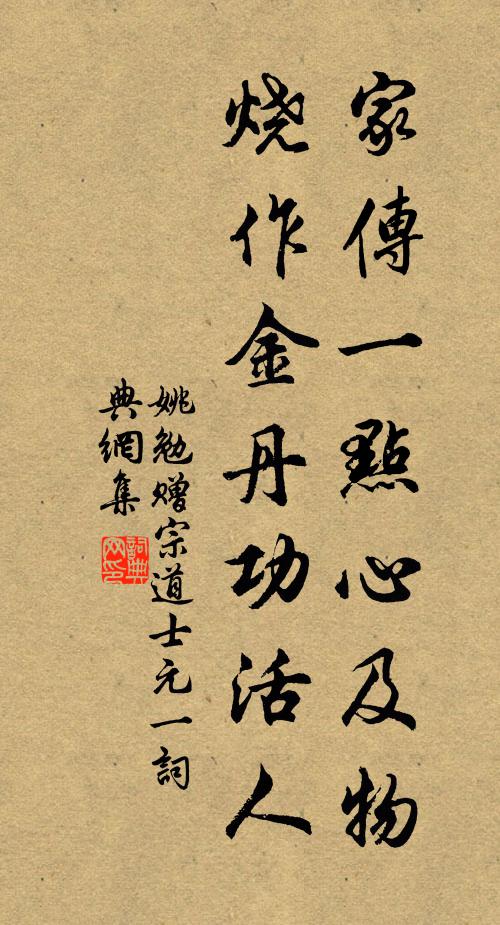 家傳一點心及物
烧作金丹功活人
姚勉赠宗道士元一詞
典網集
詞典网印